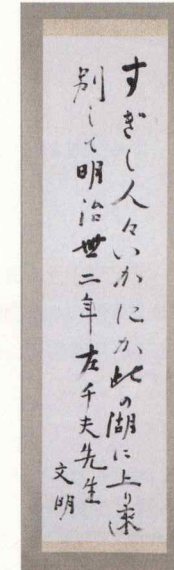 すぎし人々いかにか此の湖に上り来し
別して明治卅二年左千夫先生
文明